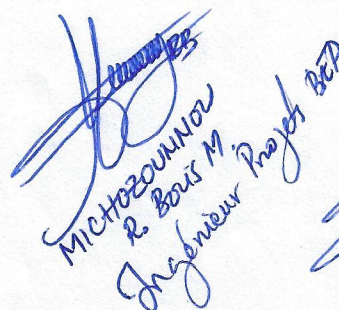 MICHOZOUNNOU
R. Boris M.
Ingénieur Projets